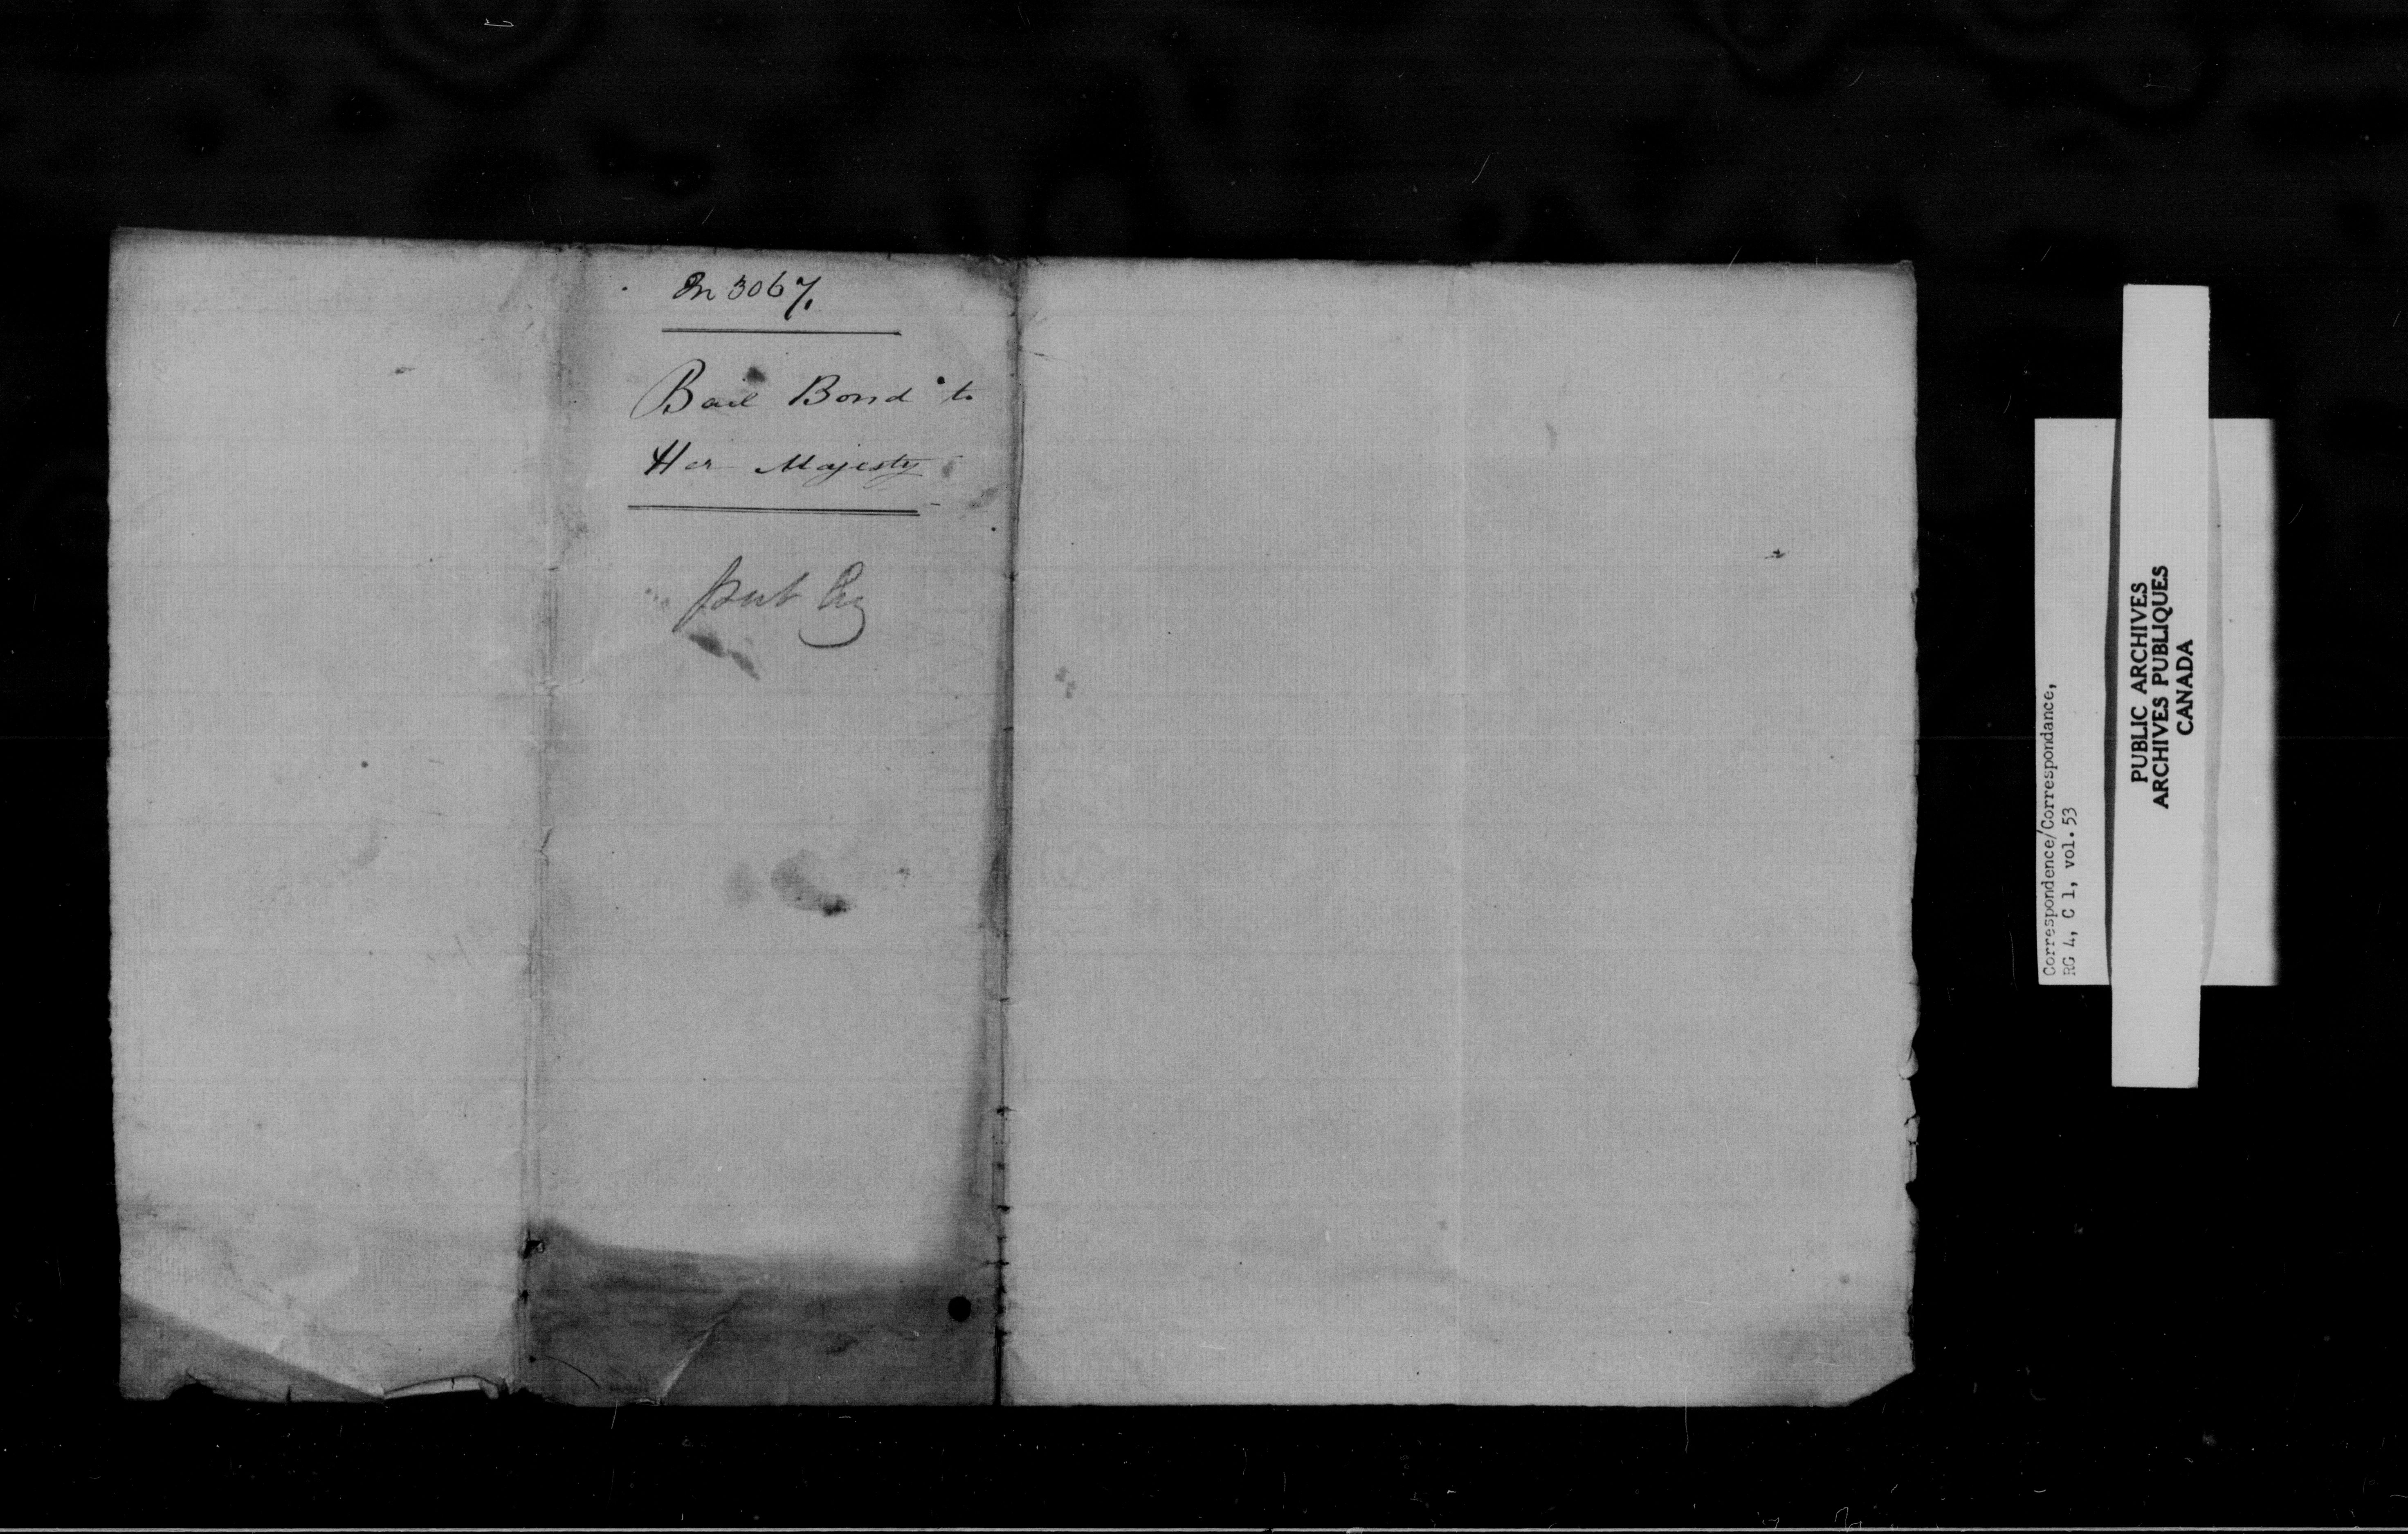 In 3067.
Bail Bond to
Her Majesty
put by
Correspondence/Correspondance,
RG 4, C 1, vol.53
PUBLIC ARCHIVES
ARCHIVES PUBLIQUES
CANADA